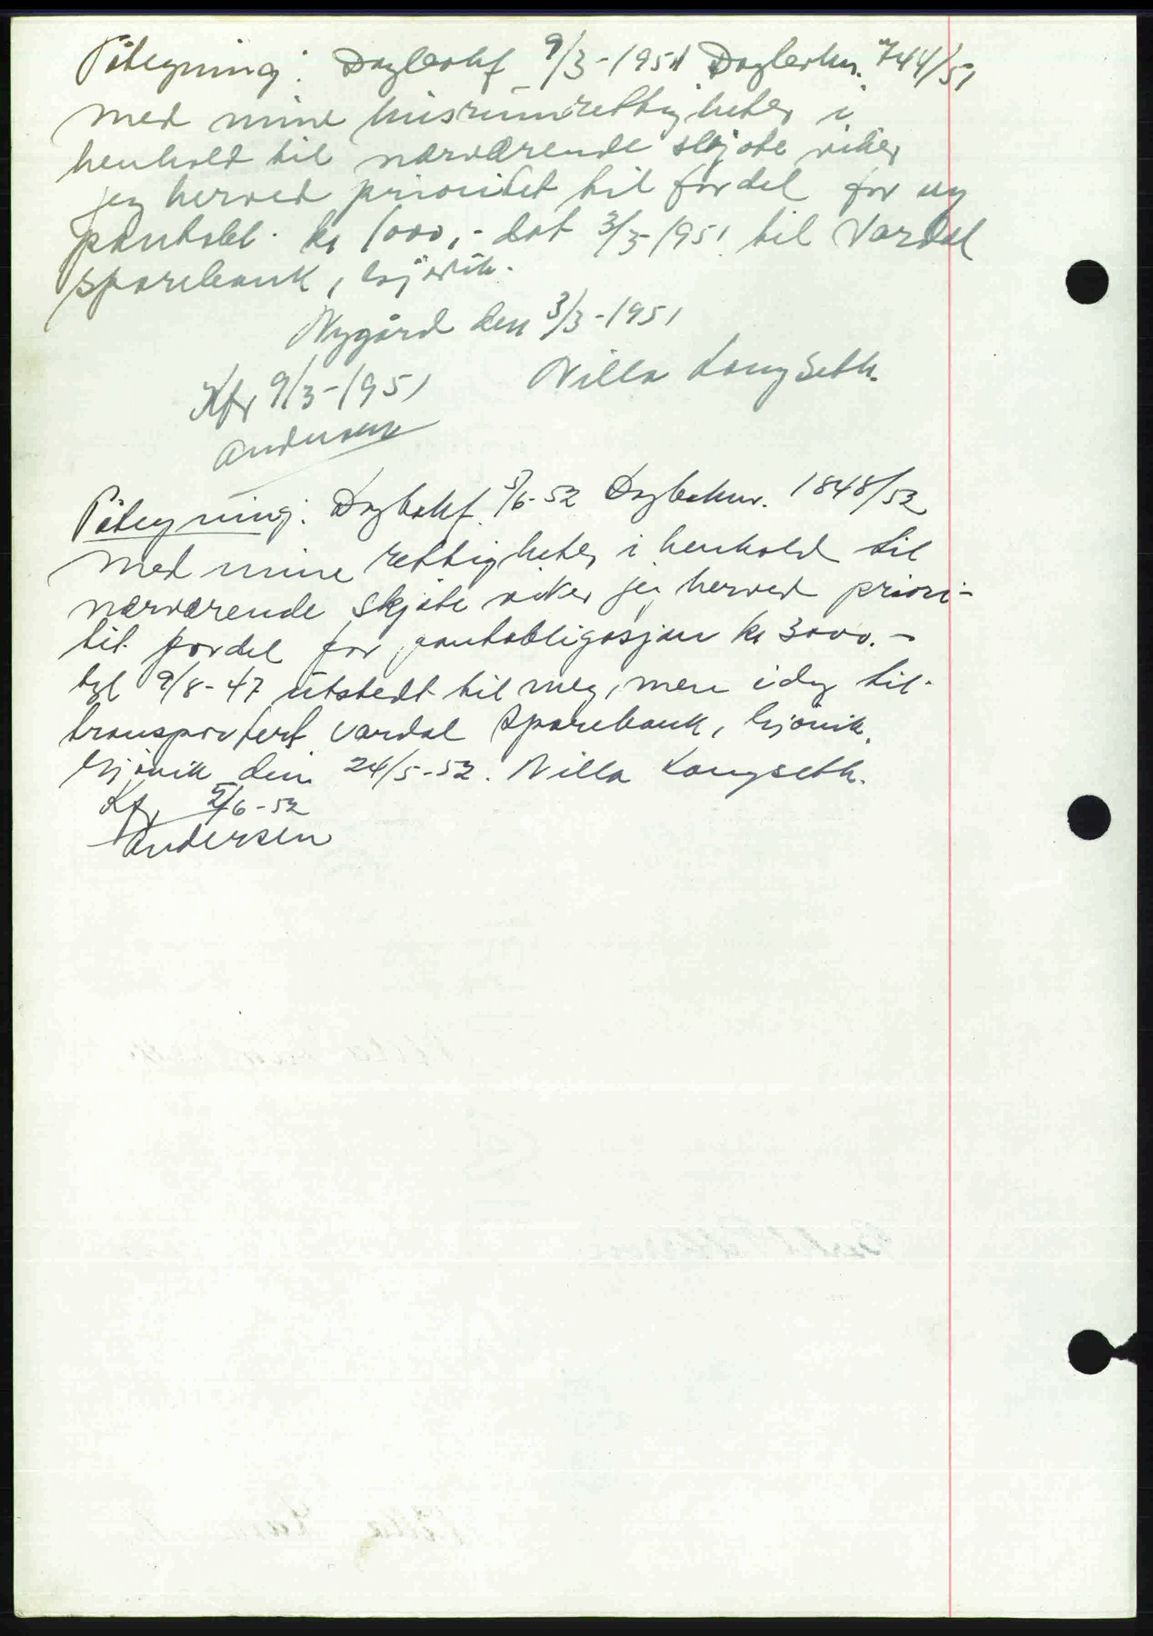 Påtegning: Dagbokf 9/3-1951 Dagboknr. 744/51
Med mine husrumsrettigheter i
henhold til nærværende skjøte viker
jeg herved prioritet til fordel for ny
pantobl. kr 1000,- dat 3/3-1951 til Vardal
sparebank, Gjøvik.
Nygård den 3/3-1951
Nilla Langseth.
Kfr 9/3-1951
Andersen
Påtegning: Dagbokf. 5/6-52 Dagboknr. 1848/52
Med mine rettigheter i henhold til
nærværende skjøte viker jeg herved priori-
tet fordel for pantobligasjon kr 3000.-
tgl 9/8-47 utstedt til meg, men idag til-
transportert Vardal Sparebank, Gjøvik.
Gjøvik den 24/5-52. Nilla Langseth.
Kfr 5/6-52
Andersen